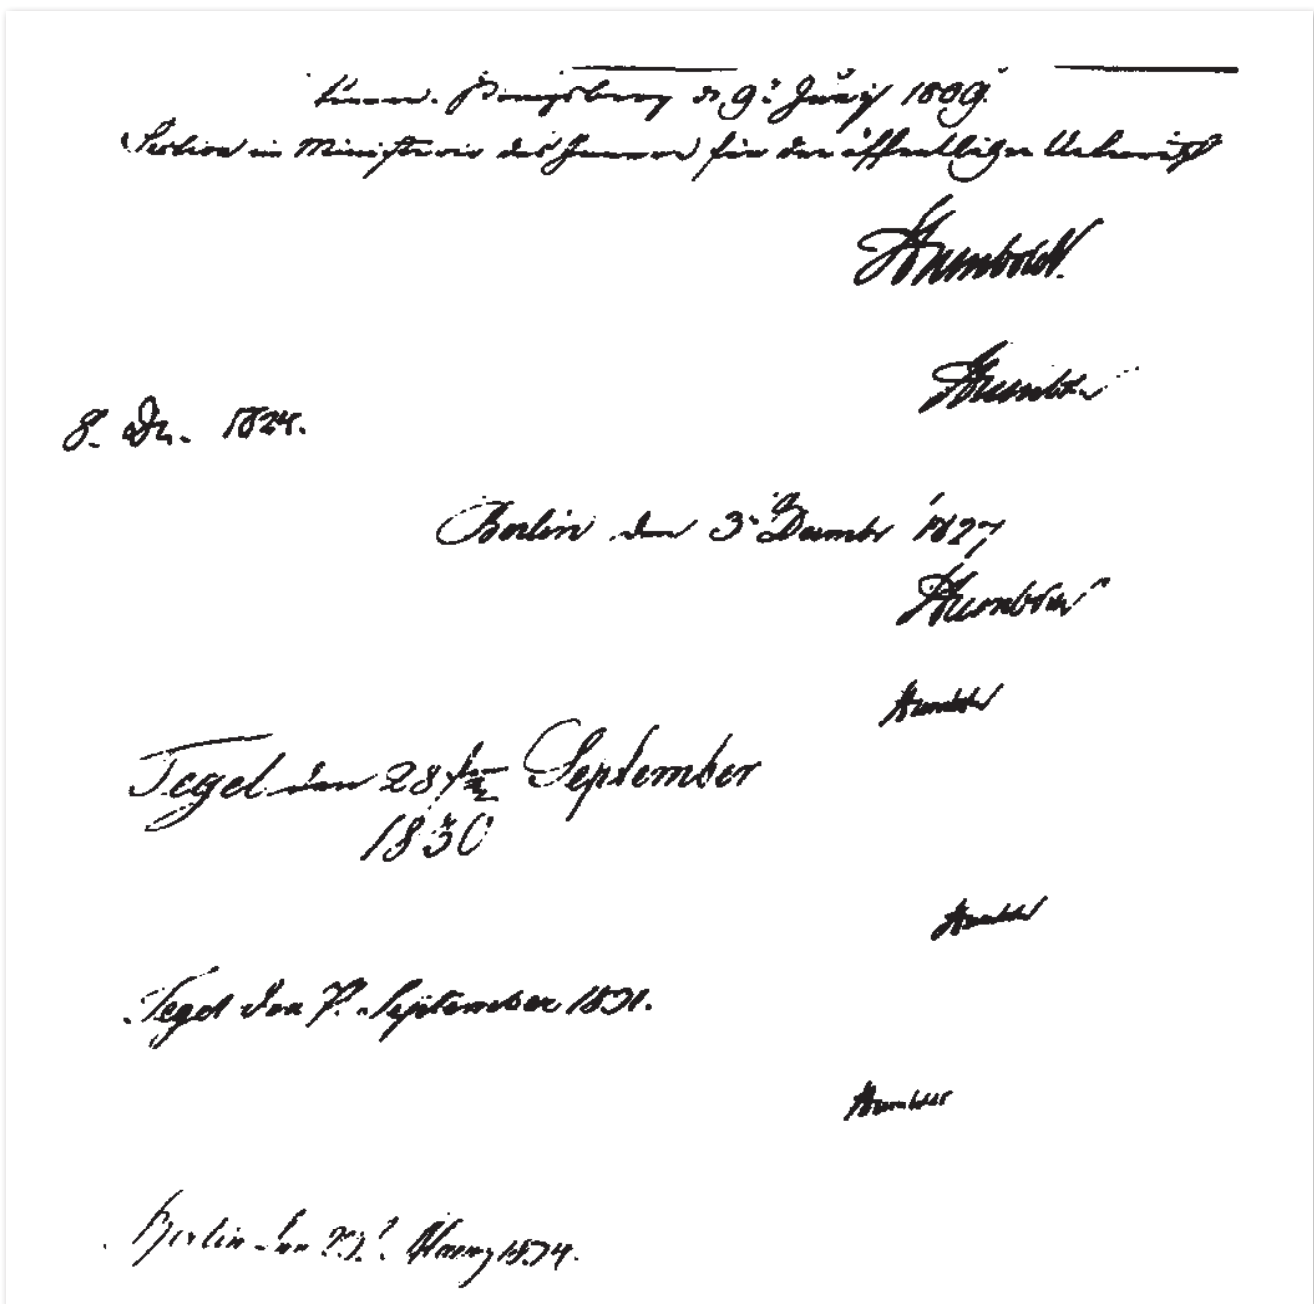 Königsberg d 9t Junij 1809.
Section im Ministerio des Innern für den öffentlichen Unterricht
Humboldt.
Humboldt
8. 1824.
Berlin den 3. December 1827
Humboldt
Humboldt
Tegel den 28sten September
1830
Humboldt
Tegel den 7. September 1831.
Humboldt
Berlin den 1834.